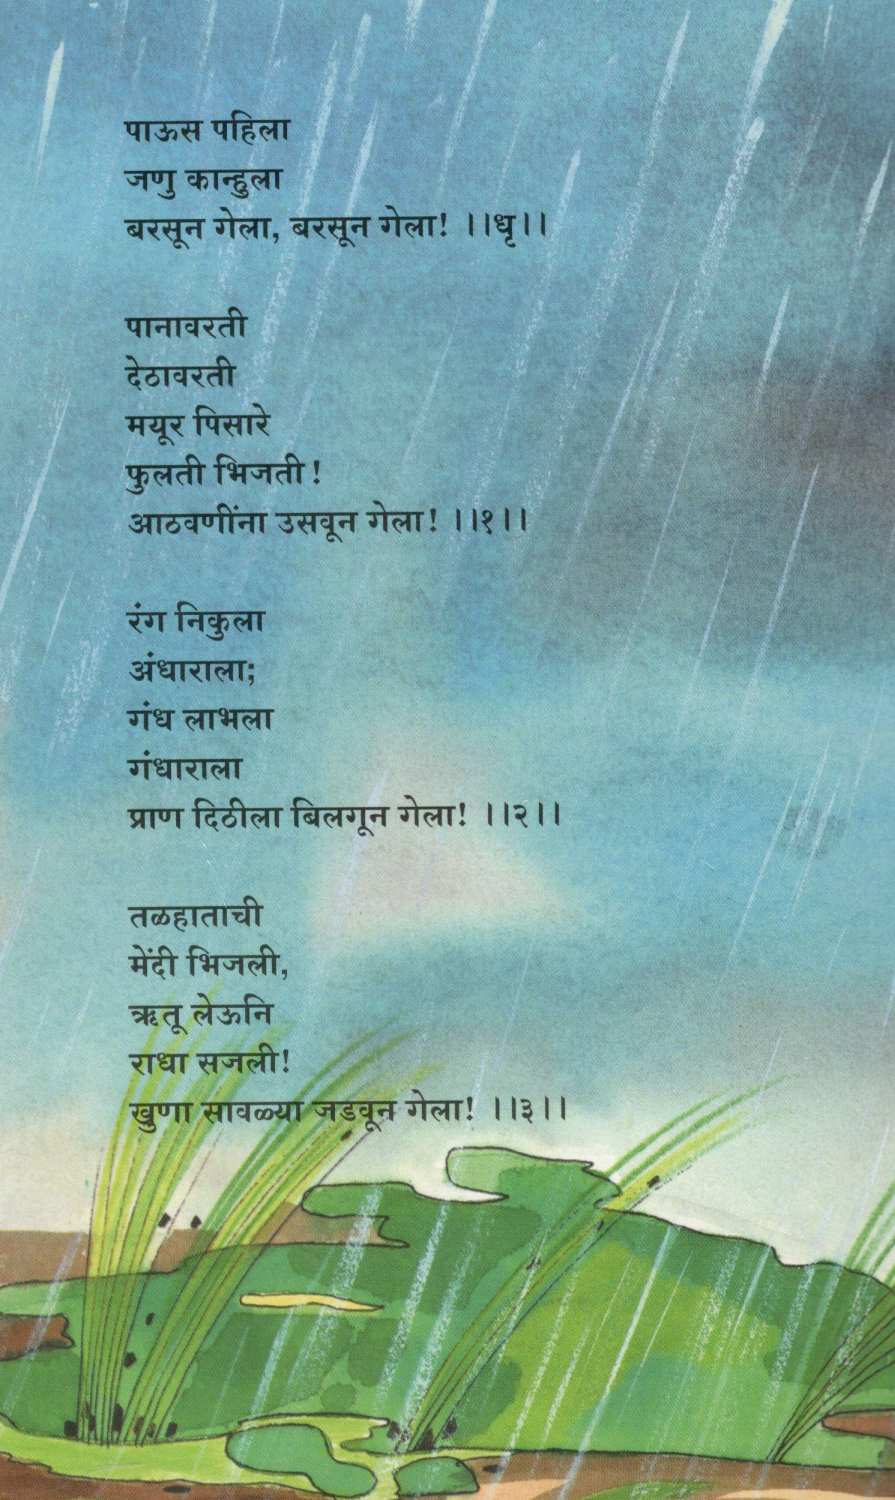 पाऊस पहिला
जणु कान्हुला
बरसून गेला, बरसून गेला! ।।धृ।।
पानावरती
देठावरती
मयूर पिसारे
फुलती भिजती!
आठवणींना उसवून गेला! ।।१।।
रंग निकुला
अंधाराला;
गंध लाभला
गंधाराला
प्राण दिठीला बिलगून गेला! ।।२।।
तळहाताची
मेंदी भिजली,
ऋतू लेऊनि
राधा सजली!
खुणा सावळ्या जडवून गेला! ।।३।।